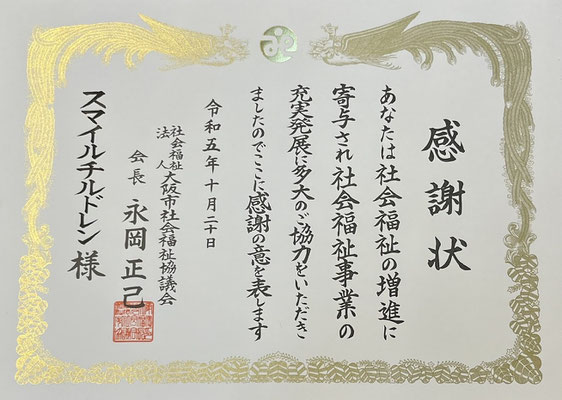 感謝状
あなたは社会福祉の増進に
寄与され社会福祉事業の
充実発展に多大のご協力をいただき
ましたのでここに感謝の意を表します
令和五年十月二十日
社会福祉
法人
大阪市社会福祉協議会
会長 永岡正己
スマイルチルドレン様